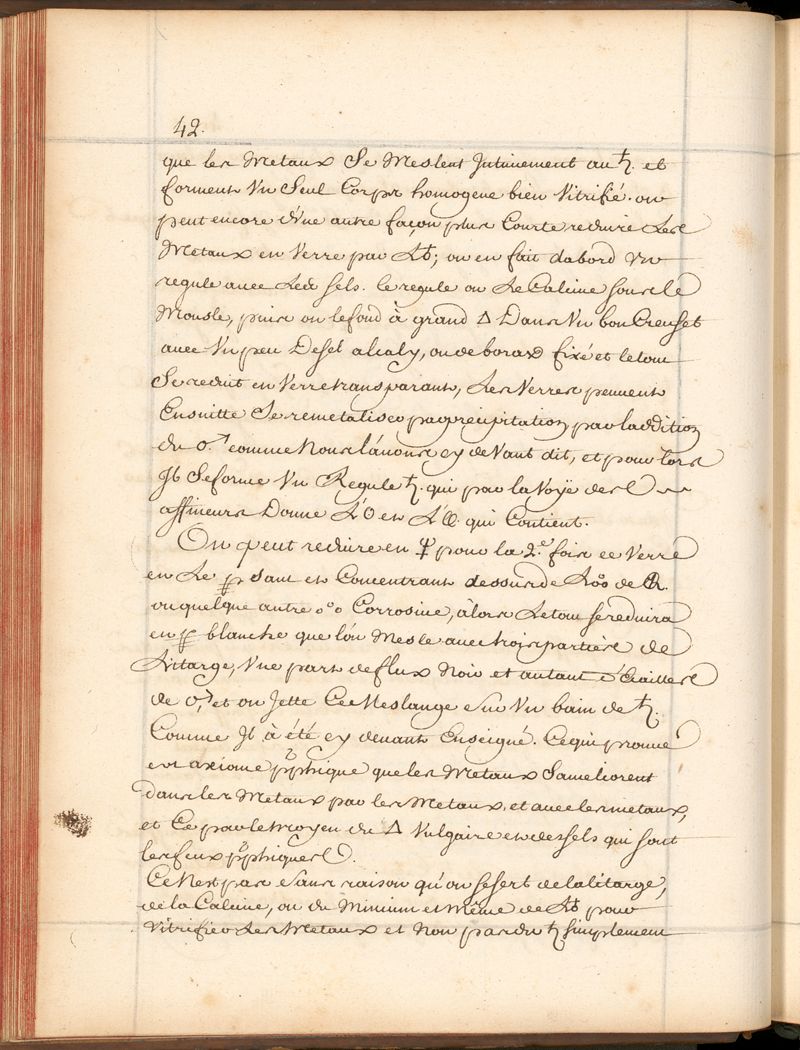 42.
que les Metaux Se Meslent Intimement au ♄. et
forment Un Seul Corps homogene bien Vitrifié. on
peut encore d'Une autre façon plus Courte reduire Les
Metaux en Verre par L♁; on en fait dabord Un
regule avec Les sels. le regule on Le Calcine sous le
Moufle, puis on le fond à grand △ Dans Un bon Creuset
avec Un peu De sel alcaly, ou de borax fixé et le tout
Se reduit en Verre transparant, Les Verres peuvent
Ensuitte Se remetaliser par precipitation par laddition
du ♂. comme Nous l'avons cy deVant dit, et pour lors
Il Se forme Un Regule ♄. qui par la Voÿe des
affineurs Donne L'☉ et L'☾. qui Contient.
On peut reduire en 🜍 pour la 2.e fois ce Verre
en Le dessus de
ou quelque autre Corrosive, àlors Le tout se reduira
en blanche que l'on Mesle avec trois parties de
Litarge, Une part de flux Noir et autant d'Ecailles
de ♂, et on Jette Ce Meslange sur Un bain de ♄.
Comme Il à été cy devant Enseigné. Ce qui prouve
cet axiome pphique que les Metaux Sameliorent
Dans les Metaux par les Metaux, et avec les metaux,
et Ce par le moyen du △ Vulgaire et des sels qui sont
les feux pphiques.
Ce Nest pas sans raison qu'on se sert de la litarge,
de la Calcine, ou du Minium et même de L♁ pour
Vitrifier Les Metaux et Non pas du ♄ simplement